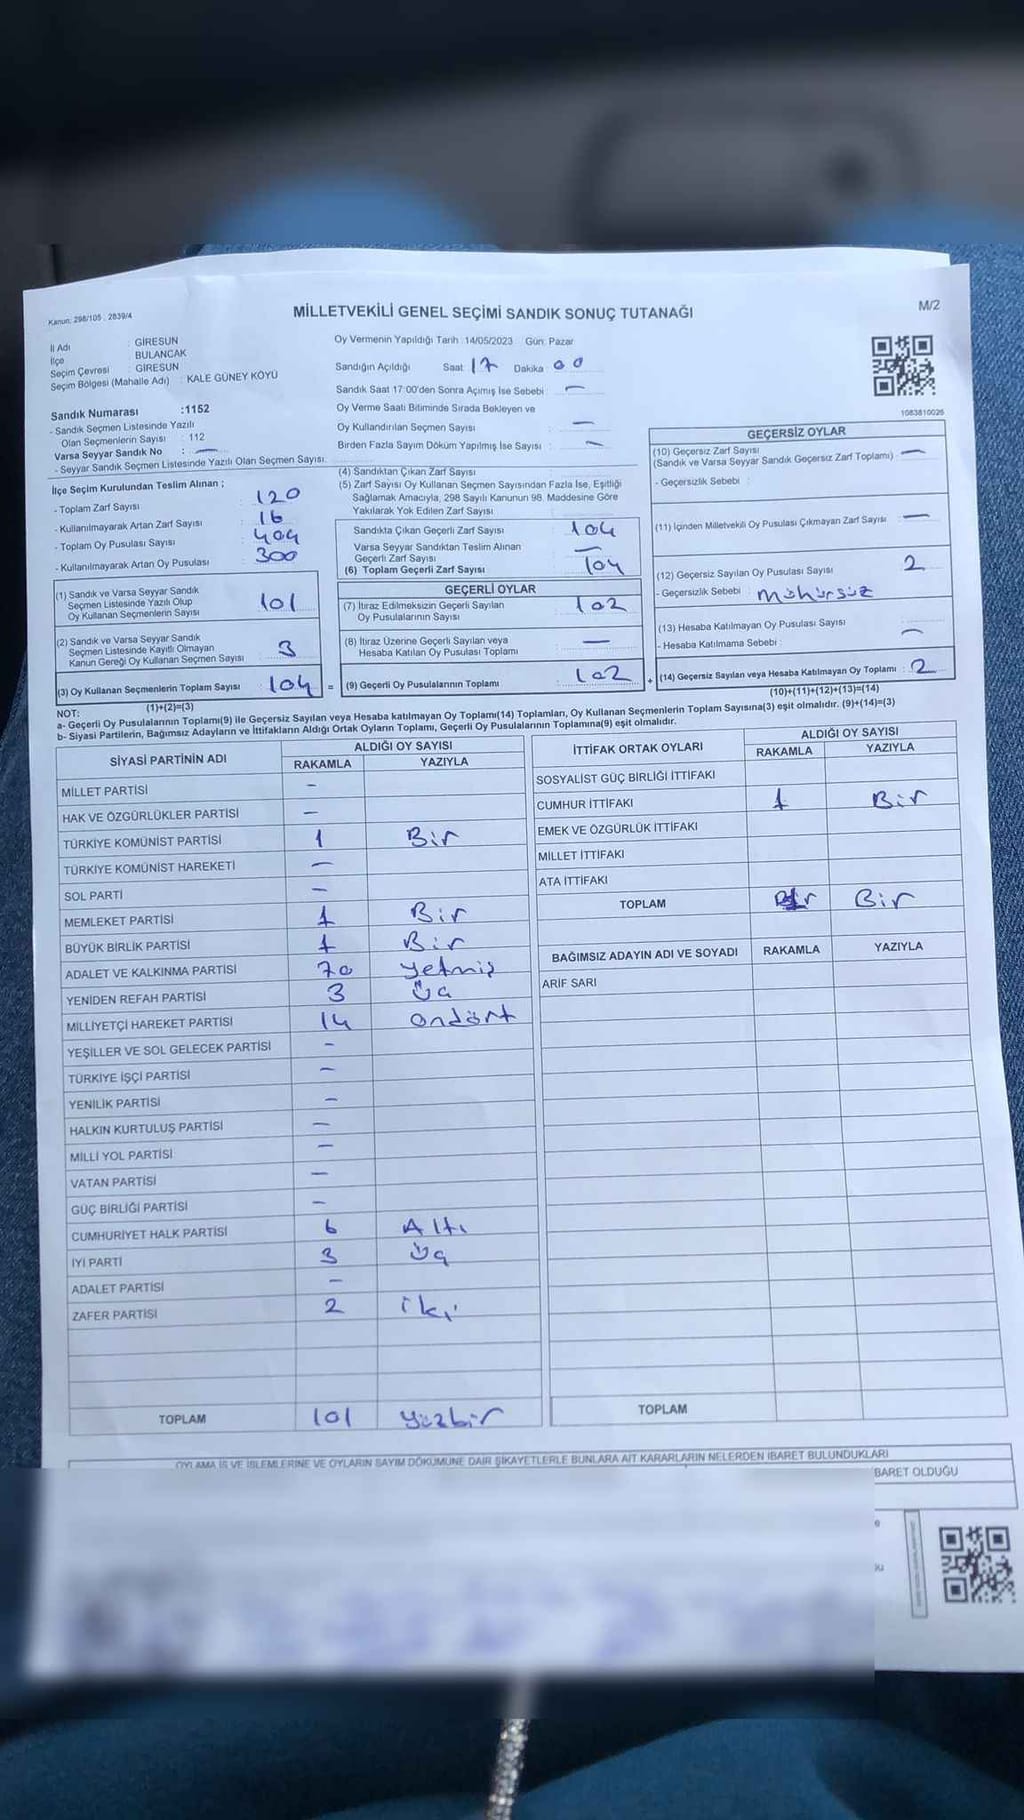 Kanun: 298/105 , 2839/4
MİLLETVEKİLİ GENEL SEÇİMİ SANDIK SONUÇ TUTANAĞI
M/2
İl Adı : GİRESUN
İlçe : BULANCAK
Seçim Çevresi : GİRESUN
Seçim Bölgesi (Mahalle Adı) : KALE GÜNEY KÖYÜ
Sandık Numarası :1152
- Sandık Seçmen Listesinde Yazılı
Olan Seçmenlerin Sayısı : 112
Varsa Seyyar Sandık No : —
- Seyyar Sandık Seçmen Listesinde Yazılı Olan Seçmen Sayısı.
Oy Vermenin Yapıldığı Tarih :14/05/2023 Gün: Pazar
Sandığın Açıldığı Saat 17 Dakika 00
Sandık Saat 17:00'den Sonra Açımış İse Sebebi : —
Oy Verme Saati Bitiminde Sırada Bekleyen ve
Oy Kullandırılan Seçmen Sayısı : —
Birden Fazla Sayım Döküm Yapılmış İse Sayısı : —
1083810026
İlçe Seçim Kurulundan Teslim Alınan ;
- Toplam Zarf Sayısı : 120
- Kullanılmayarak Artan Zarf Sayısı : 16
- Toplam Oy Pusulası Sayısı : 404
- Kullanılmayarak Artan Oy Pusulası : 300
(1) Sandık ve Varsa Seyyar Sandık
Seçmen Listesinde Yazılı Olup
Oy Kullanan Seçmenlerin Sayısı : 101
(2) Sandık ve Varsa Seyyar Sandık
Seçmen Listesinde Kayıtlı Olmayan
Kanun Gereği Oy Kullanan Seçmen Sayısı : 3
(3) Oy Kullanan Seçmenlerin Toplam Sayısı : 104 =
(1)+(2)=(3)
(4) Sandıktan Çıkan Zarf Sayısı :
(5) Zarf Sayısı Oy Kullanan Seçmen Sayısından Fazla İse, Eşitliği
Sağlamak Amacıyla, 298 Sayılı Kanunun 98. Maddesine Göre
Yakılarak Yok Edilen Zarf Sayısı :
Sandıkta Çıkan Geçerli Zarf Sayısı : 104
Varsa Seyyar Sandıktan Teslim Alınan
Geçerli Zarf Sayısı : —
(6) Toplam Geçerli Zarf Sayısı : 104
GEÇERLİ OYLAR
(7) İtiraz Edilmeksizin Geçerli Sayılan
Oy Pusulalarının Sayısı : 102
(8) İtiraz Üzerine Geçerli Sayılan veya
Hesaba Katılan Oy Pusulası Toplamı : —
(9) Geçerli Oy Pusulalarının Toplamı : 102 +
GEÇERSİZ OYLAR
(10) Geçersiz Zarf Sayısı
(Sandık ve Varsa Seyyar Sandık Geçersiz Zarf Toplamı) : —
- Geçersizlik Sebebi :
(11) İçinden Milletvekili Oy Pusulası Çıkmayan Zarf Sayısı : —
(12) Geçersiz Sayılan Oy Pusulası Sayısı : 2
- Geçersizlik Sebebi : mühürsüz
(13) Hesaba Katılmayan Oy Pusulası Sayısı : —
- Hesaba Katılmama Sebebi :
(14) Geçersiz Sayılan veya Hesaba Katılmayan Oy Toplamı : 2
(10)+(11)+(12)+(13)=(14)
NOT:
a- Geçerli Oy Pusulalarının Toplamı(9) ile Geçersiz Sayılan veya Hesaba katılmayan Oy Toplamı(14) Toplamları, Oy Kullanan Seçmenlerin Toplam Sayısına(3) eşit olmalıdır. (9)+(14)=(3)
b- Siyasi Partilerin, Bağımsız Adayların ve İttifakların Aldığı Ortak Oyların Toplamı, Geçerli Oy Pusulalarının Toplamına(9) eşit olmalıdır.
SİYASİ PARTİNİN ADI
ALDIĞI OY SAYISI
RAKAMLA YAZIYLA
MİLLET PARTİSİ —
HAK VE ÖZGÜRLÜKLER PARTİSİ —
TÜRKİYE KOMÜNİST PARTİSİ 1 Bir
TÜRKİYE KOMÜNİST HAREKETİ —
SOL PARTİ —
MEMLEKET PARTİSİ 1 Bir
BÜYÜK BİRLİK PARTİSİ 1 Bir
ADALET VE KALKINMA PARTİSİ 70 yetmiş
YENİDEN REFAH PARTİSİ 3 Üç
MİLLİYETÇİ HAREKET PARTİSİ 14 ondört
YEŞİLLER VE SOL GELECEK PARTİSİ —
TÜRKİYE İŞÇİ PARTİSİ —
YENİLİK PARTİSİ —
HALKIN KURTULUŞ PARTİSİ —
MİLLİ YOL PARTİSİ —
VATAN PARTİSİ —
GÜÇ BİRLİĞİ PARTİSİ —
CUMHURİYET HALK PARTİSİ 6 Altı
İYİ PARTİ 3 Üç
ADALET PARTİSİ —
ZAFER PARTİSİ 2 iki
TOPLAM 101 yüzbir
İTTİFAK ORTAK OYLARI
ALDIĞI OY SAYISI
RAKAMLA YAZIYLA
SOSYALİST GÜÇ BİRLİĞİ İTTİFAKI
CUMHUR İTTİFAKI 1 Bir
EMEK VE ÖZGÜRLÜK İTTİFAKI
MİLLET İTTİFAKI
ATA İTTİFAKI
TOPLAM Bir
BAĞIMSIZ ADAYIN ADI VE SOYADI RAKAMLA YAZIYLA
ARİF SARI
TOPLAM
OYLAMA İŞ VE İŞLEMLERİNE VE OYLARIN SAYIM DÖKÜMÜNE DAİR ŞİKAYETLERLE BUNLARA AİT KARARLARIN NELERDEN İBARET BULUNDUKLARI
BARET OLDUĞU